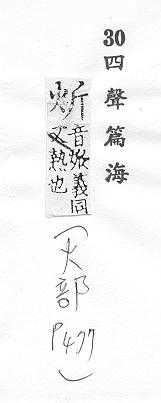 30 四聲篇海
音 義同
又熱也
(火部 P477)